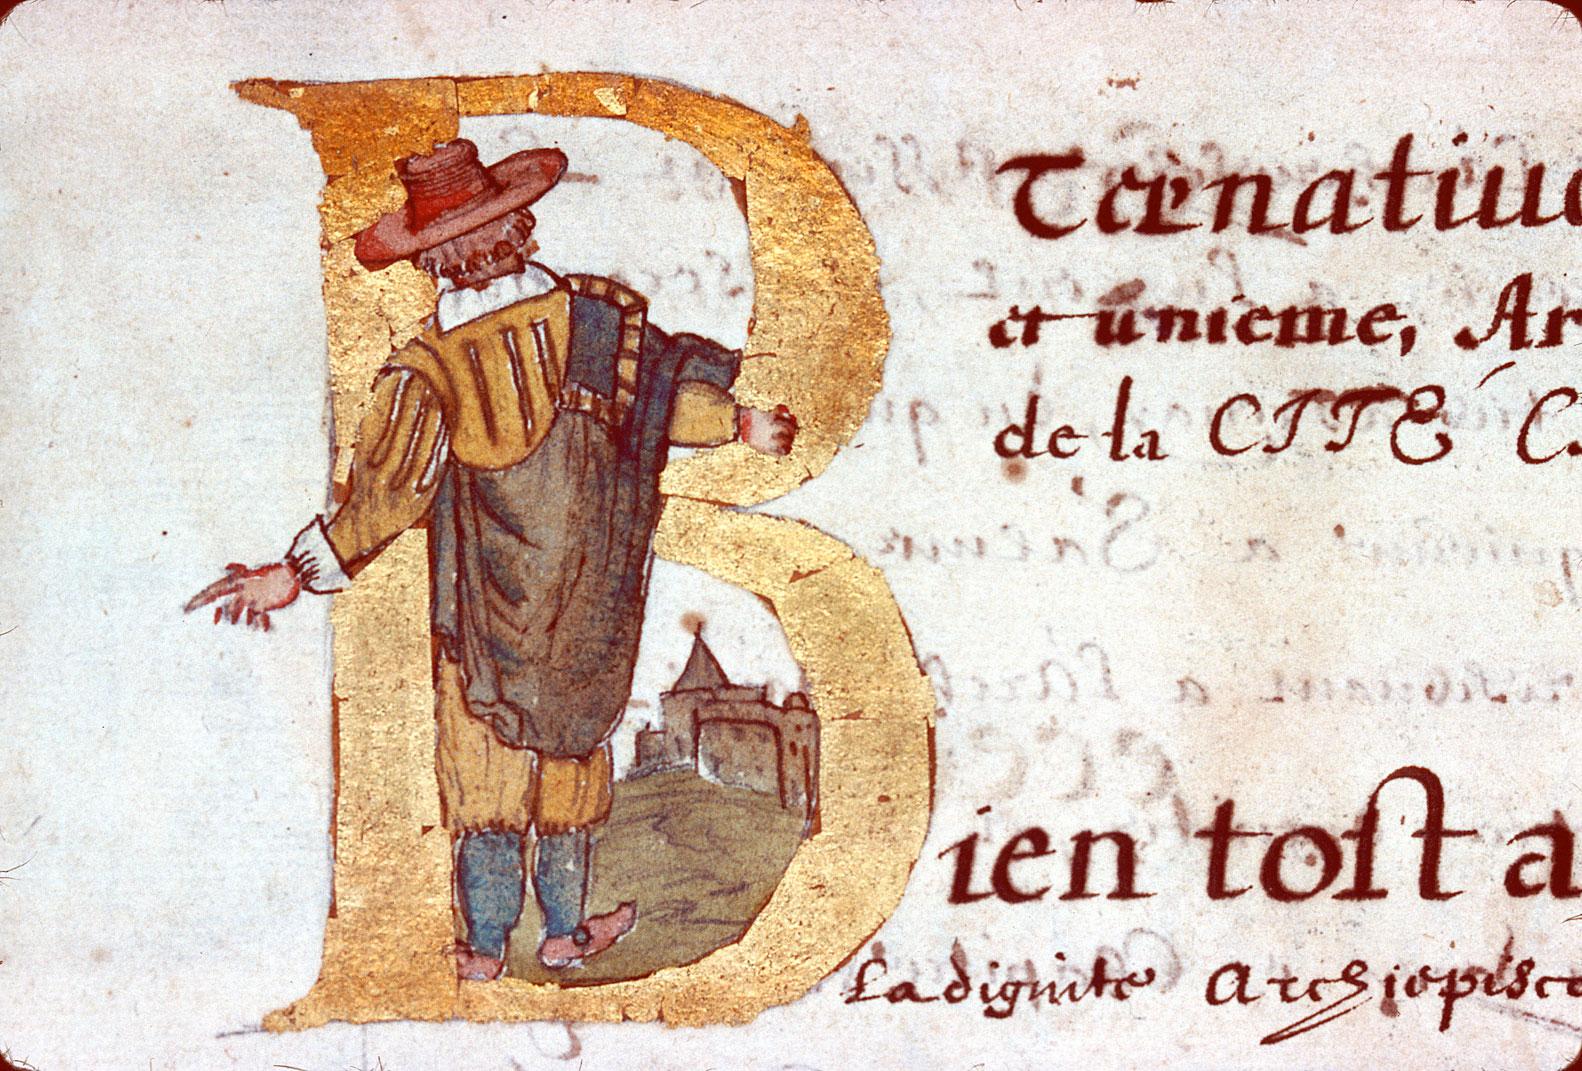 et unieme, Ar
de la CITÉ C
Bien tost a
La dignité Archiepisco